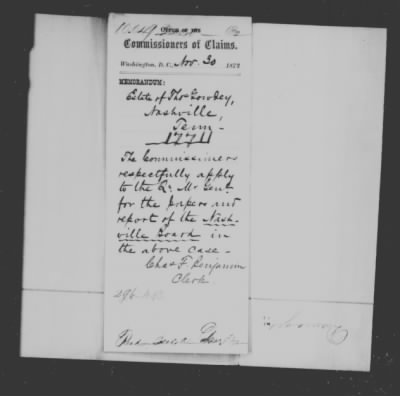 OFFICE OF THE
Commissioners of Claims.
Washington, D. C., Nov. 30 1872
MEMORANDUM:
Estate of Thos
Nashville,
Tenn -
1771
The Commissioners
respectfully apply
to the Q. M. Genl.
for the papers and
report of the Nash-
ville Board in
the above case -
Chas F. Benjamin
Clerk